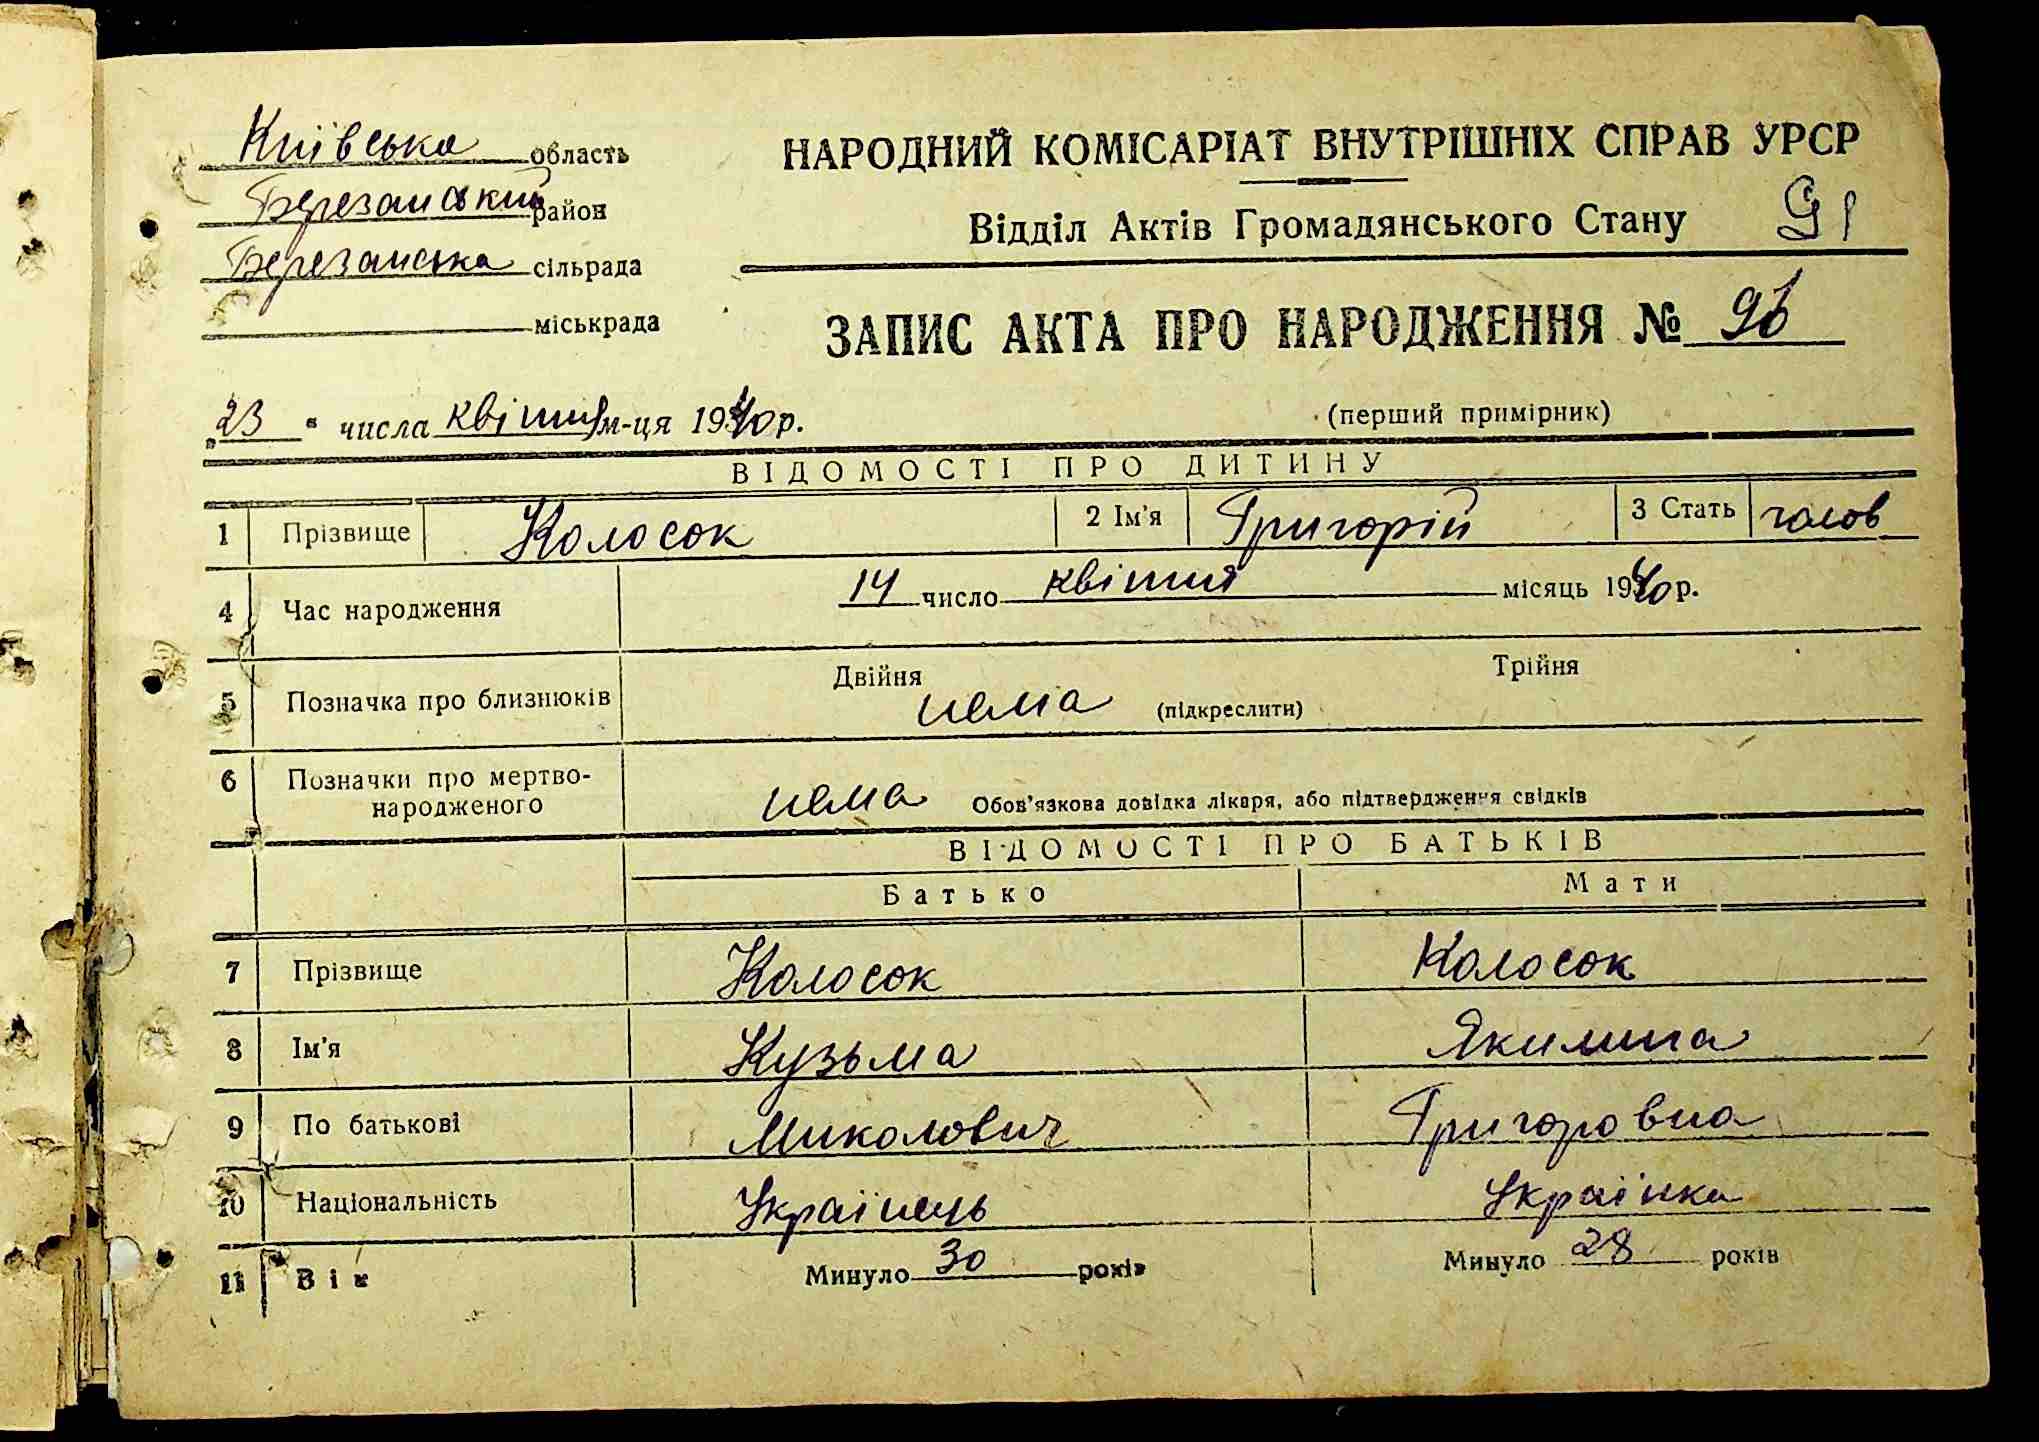 Київська область
Березанський район
Березанська сільрада
міськрада
НАРОДНИЙ КОМІСАРІАТ ВНУТРІШНІХ СПРАВ УРСР
Відділ Актів Громадянського Стану 91
ЗАПИС АКТА ПРО НАРОДЖЕННЯ № 96
„23“ числа квітня м-ця 1940 р.
(перший примірник)
ВІДОМОСТІ ПРО ДИТИНУ
1 Прізвище Колосок 2 Ім'я Григорій 3 Стать голов
4 Час народження 14 число квітня місяць 1940 р.
5 Позначка про близнюків Двійня нема (підкреслити) Трійня
6 Позначки про мертво-
народженого нема Обов'язкова довідка лікаря, або підтвердження свідків
ВІДОМОСТІ ПРО БАТЬКІВ
Батько Мати
7 Прізвище Колосок Колосок
8 Ім'я Кузьма Якимина
9 По батькові Миколович Григоровна
10 Національність Українець Українка
11 Вік Минуло 30 років Минуло 28 років